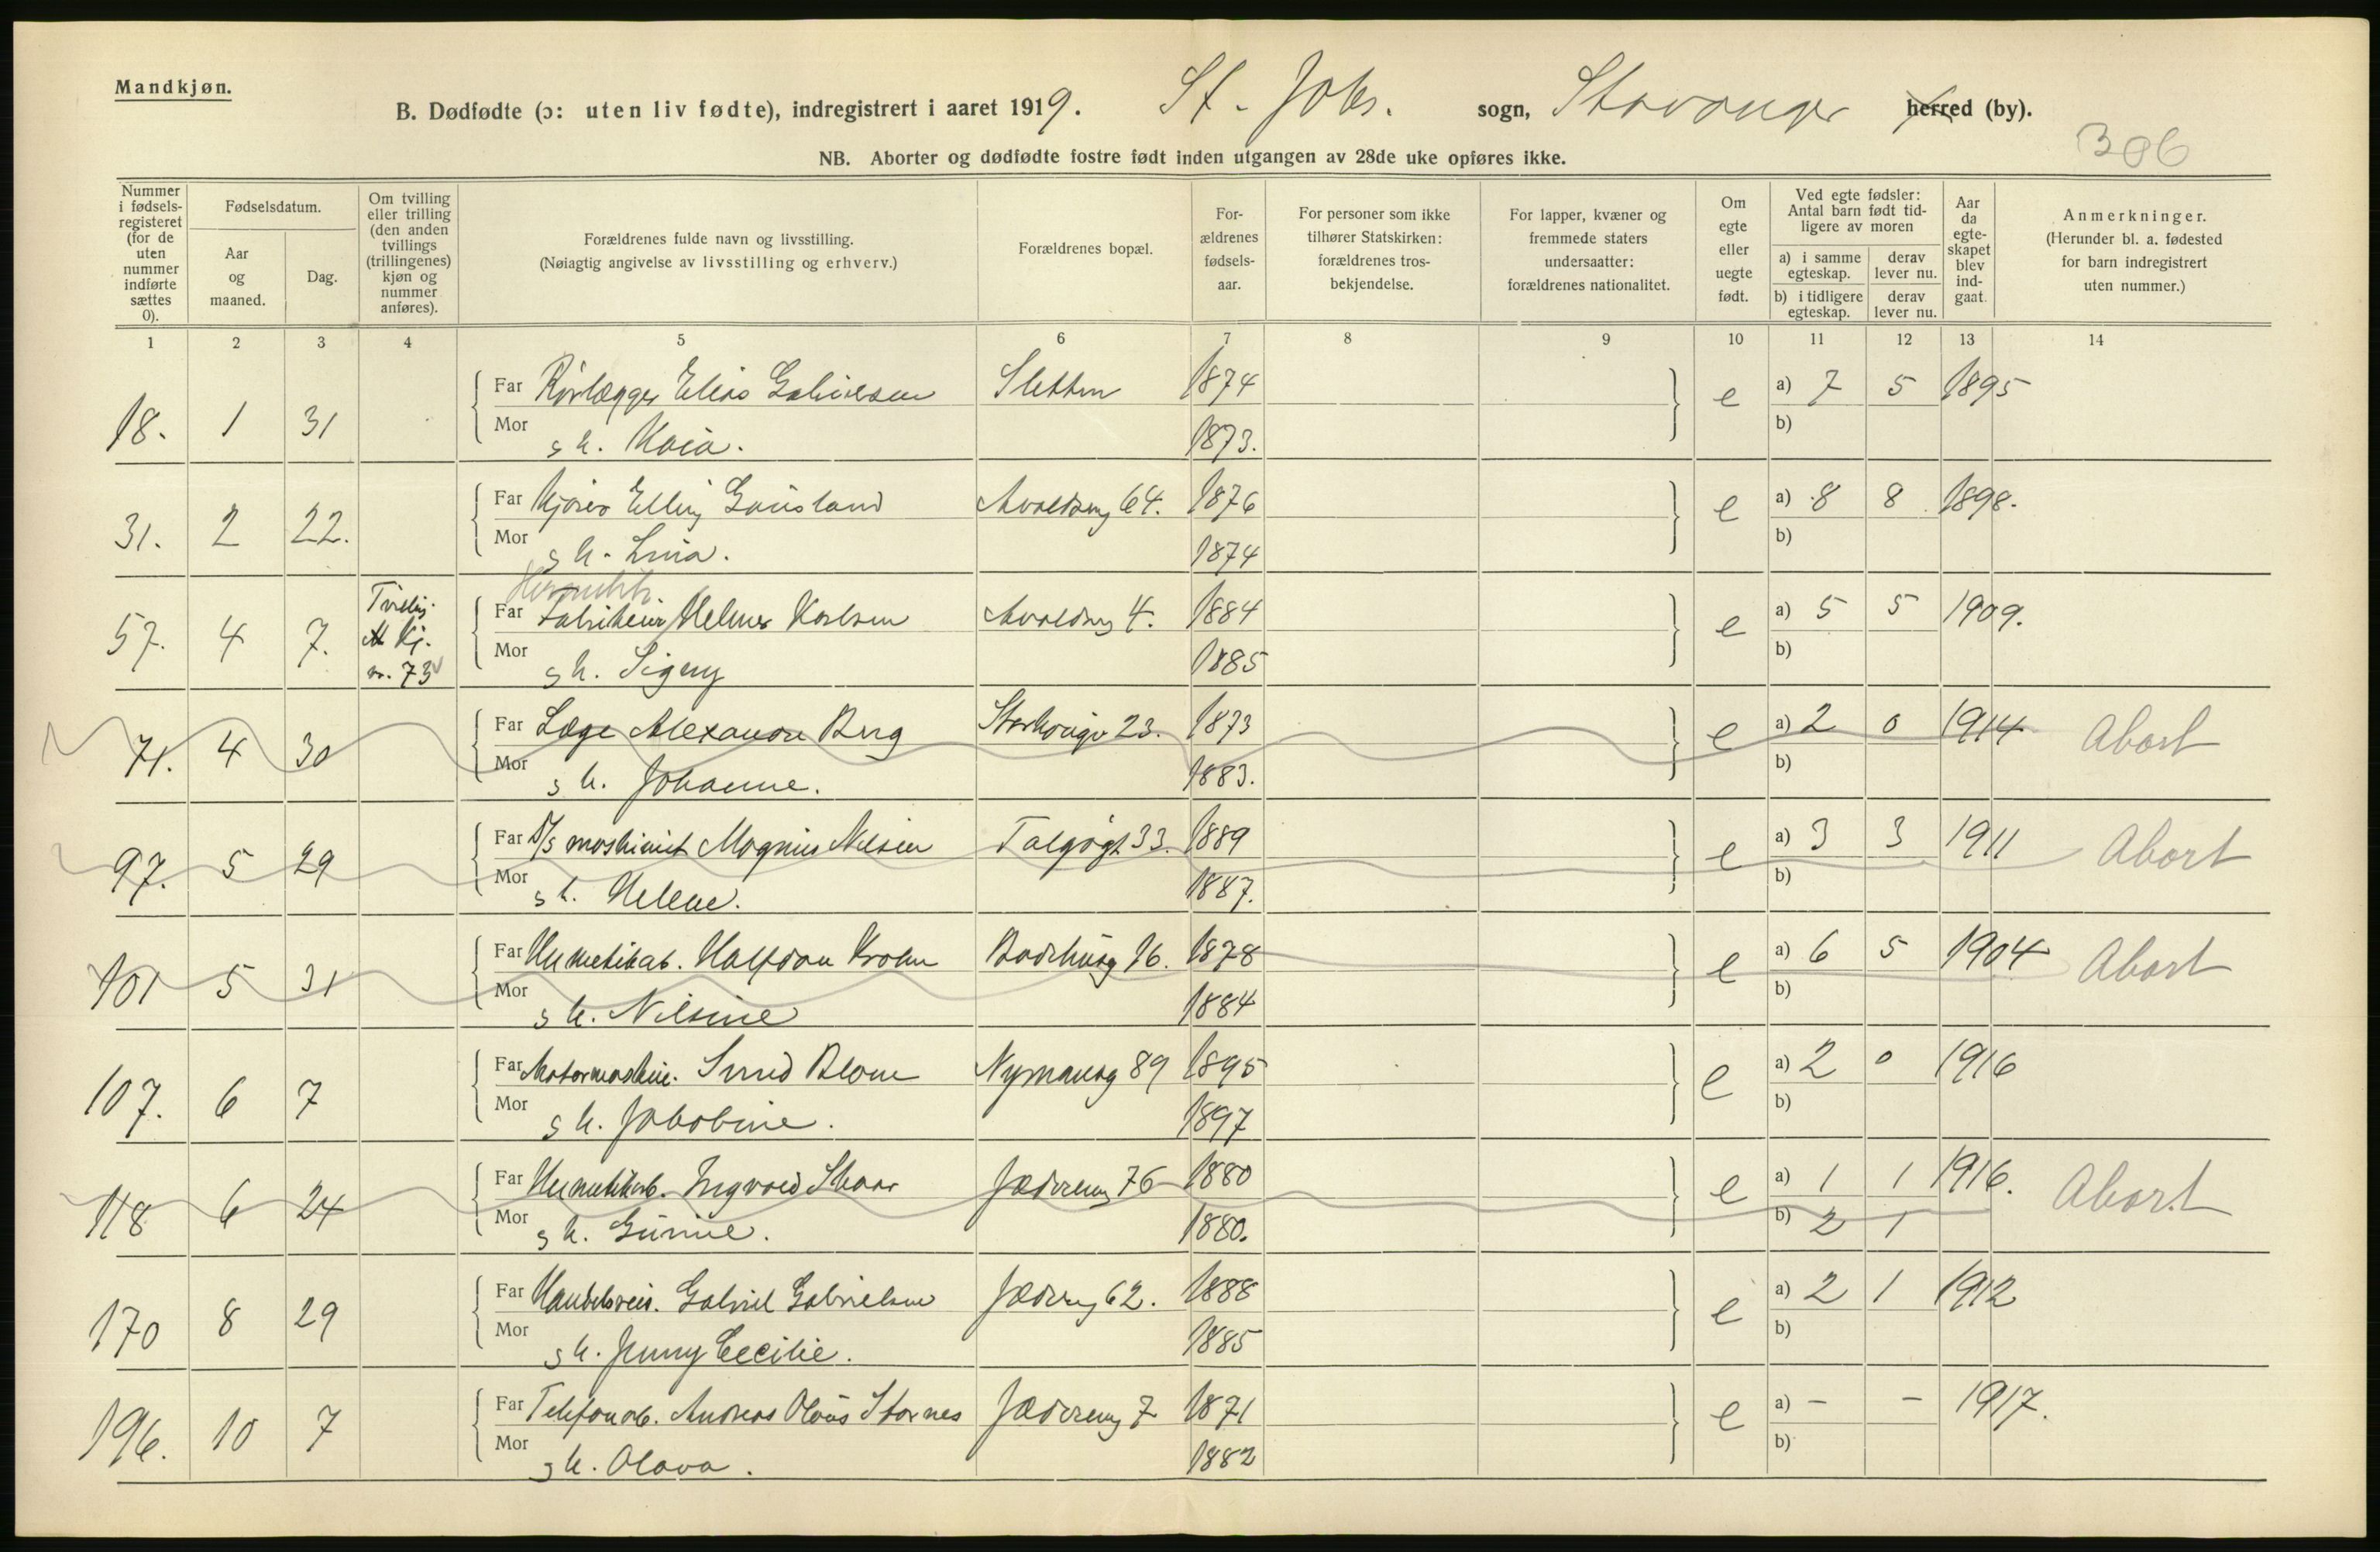 Mandkjøn.
B. Dødfødte (ɔ: uten liv fødte), indregistrert i aaret 1919. St. Johs. sogn, Stavanger herred (by).
306
NB. Aborter og dødfødte fostre født inden utgangen av 28de uke opføres ikke.
Nummer i fødsels-registeret (for de uten nummer indførte sættes 0).
Fødselsdatum.
Aar og maaned.
Dag.
Om tvilling eller trilling (den anden tvillings (trillingenes) kjøn og nummer anføres).
Forældrenes fulde navn og livsstilling.
(Nøiagtig angivelse av livsstilling og erhverv.)
Forældrenes bopæl.
For-ældrenes fødsels-aar.
For personer som ikke tilhører Statskirken: forældrenes tros-bekjendelse.
For lapper, kvæner og fremmede staters undersaatter: forældrenes nationalitet.
Om egte eller uegte født.
Ved egte fødsler: Antal barn født tid-ligere av moren
a) i samme egteskap.
derav lever nu.
b) i tidligere egteskap.
derav lever nu.
Aar da egte-skapet blev ind-gaat.
Anmerkninger.
(Herunder bl. a. fødested for barn indregistrert uten nummer.)
1 2 3 4 5 6 7 8 9 10 11 12 13 14
18. 1 31 Far Rørlægger Elias Gabrielsen Sletten 1874 e a) 7 5 1895
Mor s h. Kaia. 1873. b)
31. 2 22. Far Kjører Elling Gausland 64. 1876 e a) 8 8 1898.
Mor s h. Lina. 1874 b)
Hermetikk.
57. 4 7. Tvilling. M Kj. nr. 73 Far Fabrikeier Helmer Karlsen 4. 1884 e a) 5 5 1909.
Mor s h. Signy 1885 b)
71. 4 30 Far Læge Alexander Berg 23. 1873 e a) 2 0 1914 Abort
Mor s h. Johanne. 1883. b)
97. 5 29 Far D/S maskinist Magnus Nilsen Talgøgt 33. 1889 e a) 3 3 1911 Abort
Mor s h. Helene. 1887. b)
101 5 31 Far Hermetikarb. Halfdan Krohn 16. 1878 e a) 6 5 1904 Abort
Mor s h. Nilsine 1884 b)
107. 6 7 Far Motormaskin. Blom 89 1895 e a) 2 0 1916
Mor s h. Jakobine. 1897 b)
118 6 24 Far Hermetikarb. Ingvald Skaar Jædervng 76 1880 e a) 1 1 1916. Abort
Mor s h. Gurine. 1880. b) 2 1
170 8 29 Far Handelsreis. Gabriel Gabrielsen Jæderv 62. 1888 e a) 2 1 1912
Mor s h. Jenny Cecilie. 1885 b)
196. 10 7 Far Telefonarb. Andreas Olaus Stornes Jæderveng 7 1871 e a) – – 1917.
Mor s h. Olava. 1882 b)